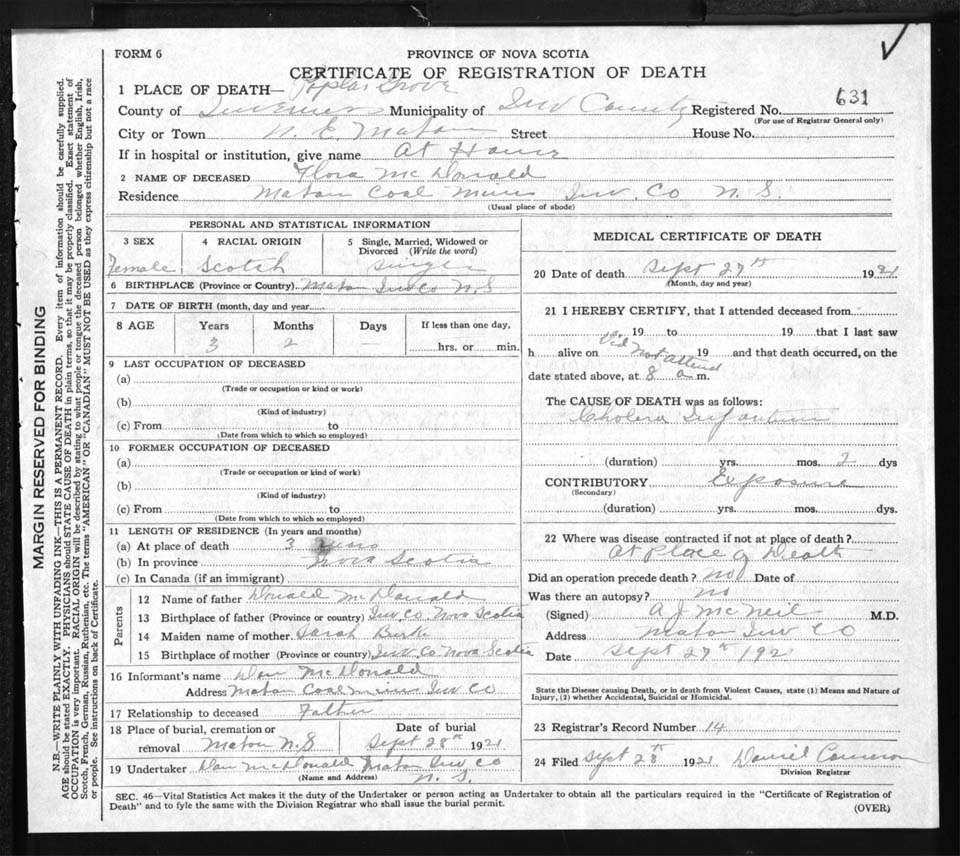 FORM 6
PROVINCE OF NOVA SCOTIA
CERTIFICATE OF REGISTRATION OF DEATH
1 PLACE OF DEATH— Poplar Grove
County of Inverness Municipality of Inv County Registered No. 631
(For use of Registrar General only)
City or Town N. E. Mabou Street House No.
If in hospital or institution, give name at Home
2 NAME OF DECEASED Flora McDonald
Residence Mabou Coal Mines Inv. Co N. S.
(Usual place of abode)
PERSONAL AND STATISTICAL INFORMATION
3 SEX 4 RACIAL ORIGIN 5 Single, Married, Widowed or Divorced (Write the word)
Female Scotch Single
6 BIRTHPLACE (Province or Country) Mabou Inv Co N. S
7 DATE OF BIRTH (month, day and year
8 AGE Years Months Days If less than one day,
3 2 — hrs. or min.
9 LAST OCCUPATION OF DECEASED
(a)
(Trade or occupation or kind or work)
(b)
(Kind of industry)
(c) From to
(Date from which to which so employed)
10 FORMER OCCUPATION OF DECEASED
(a)
(Trade or occupation or kind of work)
(b)
(Kind of industry)
(c) From to
(Date from which to which so employed)
11 LENGTH OF RESIDENCE (In years and months)
(a) At place of death 3
(b) In province Nova Scotia
(c) In Canada (if an immigrant)
Parents
12 Name of father Donald McDonald
13 Birthplace of father (Province or country) Inv. Co. Nova Scotia
14 Maiden name of mother Sarah Burke
15 Birthplace of mother (Province or country) Inv. Co Nova Scotia
16 Informant's name Dan McDonald
Address Mabou Coal mines Inv Co
17 Relationship to deceased Father
18 Place of burial, cremation or removal Mabou N. S
Date of burial
Sept 28th 1921
19 Undertaker Dan McDonald Mabou Inv Co N. S.
(Name and Address)
MEDICAL CERTIFICATE OF DEATH
20 Date of death Sept 27th 1921
(Month, day and year)
21 I HEREBY CERTIFY, that I attended deceased from
19 to 19 that I last saw
h alive on Did not attend 19 and that death occurred, on the
date stated above, at 8 a m.
The CAUSE OF DEATH was as follows:
Cholera Infantum
(duration) yrs. mos. 2 dys
CONTRIBUTORY Exposure
(Secondary)
(duration) yrs. mos. dys.
22 Where was disease contracted if not at place of death?
at place of Death
Did an operation precede death? no Date of
Was there an autopsy? no
(Signed) A J McNeil M.D.
Address Mabou Inv Co
Date Sept 27th 192
State the Disease causing Death, or in death from Violent Causes, state (1) Means and Nature of
Injury, (2) whether Accidental, Suicidal or Homicidal.
23 Registrar's Record Number 14
24 Filed Sept 28th 1921 Daniel Cameron
Division Registrar
SEC. 46—Vital Statistics Act makes it the duty of the Undertaker or person acting as Undertaker to obtain all the particulars required in the "Certificate of Registration of
Death" and to fyle the same with the Division Registrar who shall issue the burial permit.
(OVER)
MARGIN RESERVED FOR BINDING
N.B.—WRITE PLAINLY WITH UNFADING INK—THIS IS A PERMANENT RECORD. Every item of information should be carefully supplied.
AGE should be stated EXACTLY. PHYSICIANS should STATE CAUSE OF DEATH in plain terms, so that it may be properly classified. Exact statement of
OCCUPATION is very important. RACIAL ORIGIN will be described by stating to what people or tongue the deceased person belonged whether English, Irish,
Scotch, French, German, Russian, Ruthenian, etc. The terms "AMERICAN" OR "CANADIAN" MUST NOT BE USED as they express citizenship but not a race
or people. See instructions on back of Certificate.